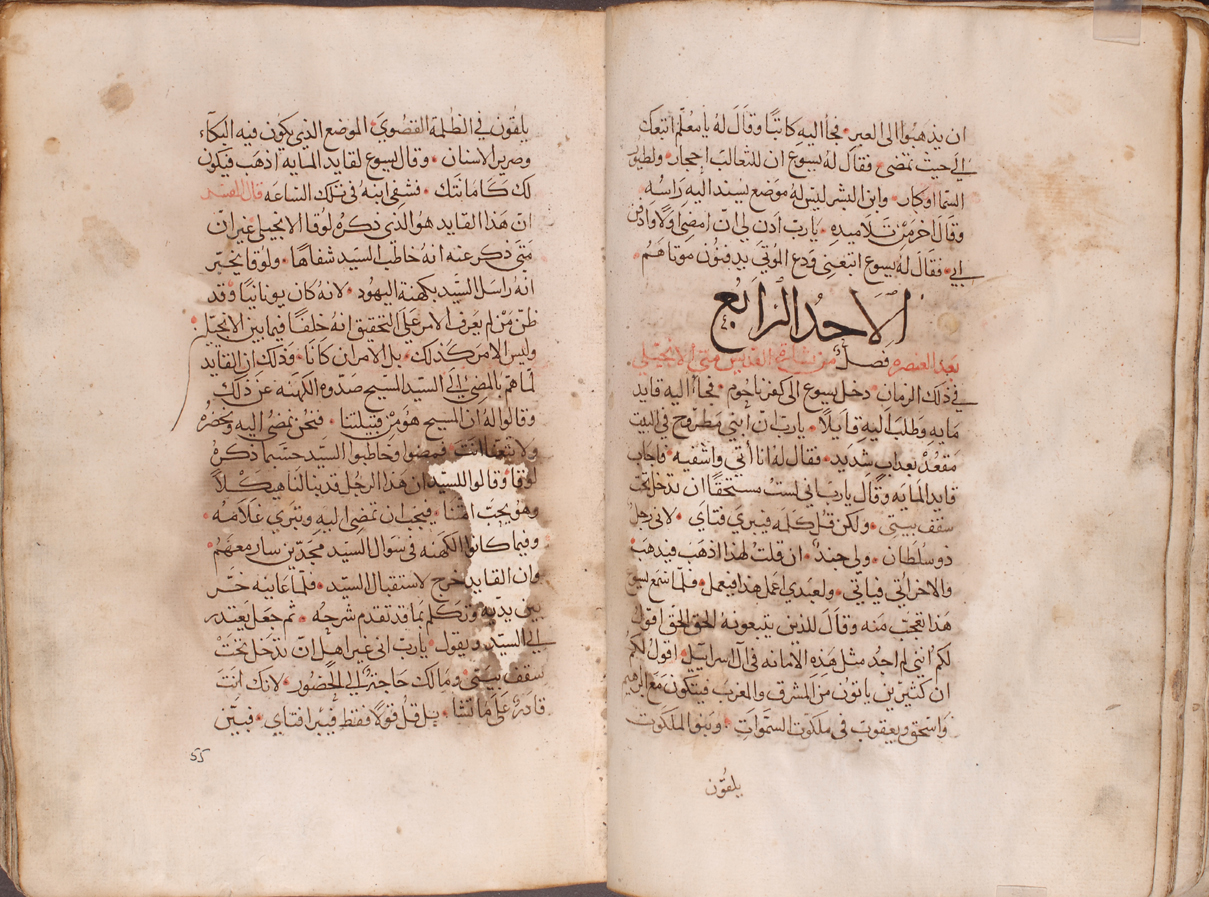 ان يذهبوا الى العبر فجا اليه كاتبًا وقَالَ لهُ يا معُلم اتبعك
الي حيث تمضي فقال له يسوع ان للثعالب احجار ولطيور
السما اوكار وابن البشر ليسَ لهُ موَضع يسند اليهِ رَاسُه
وقَالَ اخر مِنْ تلاميدهِ يا ربّ ادن لي ان امضي اولًا وادفن
ابي فقال لهُ يسوع اتبعني ودع الموُتي يدفنُون موتاهمُ
الاحدُ الرَابع
بعد العنصره فصلٌ من بشارة القديس متي الانجيلي
في ذلك الزمان دخل يسوع الى كفرناحوم فجا اليه قايد
مايه وطلبَ اليهِ قايلًا يا ربّ ان ابني مطروح في البيت
مقعدٌ بعذابٍ شديد فقال لهُ انا اتي واشفيه فاجاب
قايد المايه وقال يا رب اني لستُ بمستحقًا ان تدخل تحت
سقف بيتي ولكن قُل كلمه فيبري فتاي لاني رجلٌ
ذو سلطان ولي جندٌ ان قلتُ لهذا اذهب فيذهبَ
والاخر ايُتي فياتي ولعَبدي اعمل هذا فيعمل فلمَا سَمع يسوع
هَذا تعجبَ منه وقالَ للذين يتبعونهُ الحق الحقَ اقولُ
لكمُ انني لم اجدُ مثل هَذه الامانه في آل اسراييل اقولُ لكمُ
ان كثيرين ياتون مِنَ المشرق والمغرب فيتكون مَع ابرهيم
وَاسحق ويعقوبَ في ملكوت السَموَات وبنو الملكوت
يلقوُن
يلقون في الظلمه القصْوي الموضع الذي يكون فيه البكاء
وصرير الاسنان وقال يسوع لقايد المايه اذهب فيكون
لك كامانتك فشفي ابنهُ في تلك الساعه قال المفسر
ان هذا القايد هوُ الذي ذكرهُ لوقا الانجيلي غير ان
متي ذكر عنهَ انهُ خاطب السَيد شفاهًا ولوقا يخبّر
انهُ راسَل السَيد بكهنة اليهود لانهُ كان يونانيًا وقد
ظن مَن لم يعَرف الامر علَي التحقيق انه خلفًا فيما بين الانجيل
وليس الامر كذلك بل الامران كانَا وذلك ان القايد
لما همّ بالمضي الي السَيد المسيح صدوه الكهنه عن ذلك
وقالوا لهُ ان المسيح هوُ مِنْ قبيلتنا فنحن نمضي اليه ونحضرهُ
ولا تتعنّا انتَ فمضوا وخاطبوا السَيد حسَبما ذكرهُ
لوقا وقالوا للسيد ان هَذا الرجُل قد بنا لنا هيكلًا
وهُو يحب امّتنا فيجب ان تمضي اليهِ وتبري غلامَه
وفيما كانوا الكهنه في سَوال السَيد مجَدين سار معَهمُ
وان القايد خرج لاستقبال السيد فلمَا عاينه خَر
بين يديه وتكلم بما قد تقدم شرحهُ ثم جعل يعَتدر
الي السيد ويقول يا ربّ اني غير اهل ان تدخل تحتَ
سقف بيتي ومالك حاجةٌ الي الحضُور لانك انتَ
قادرٌ علَي ماتشا بل قل قولًا فقط فيبرا فتاي فبيّن
55